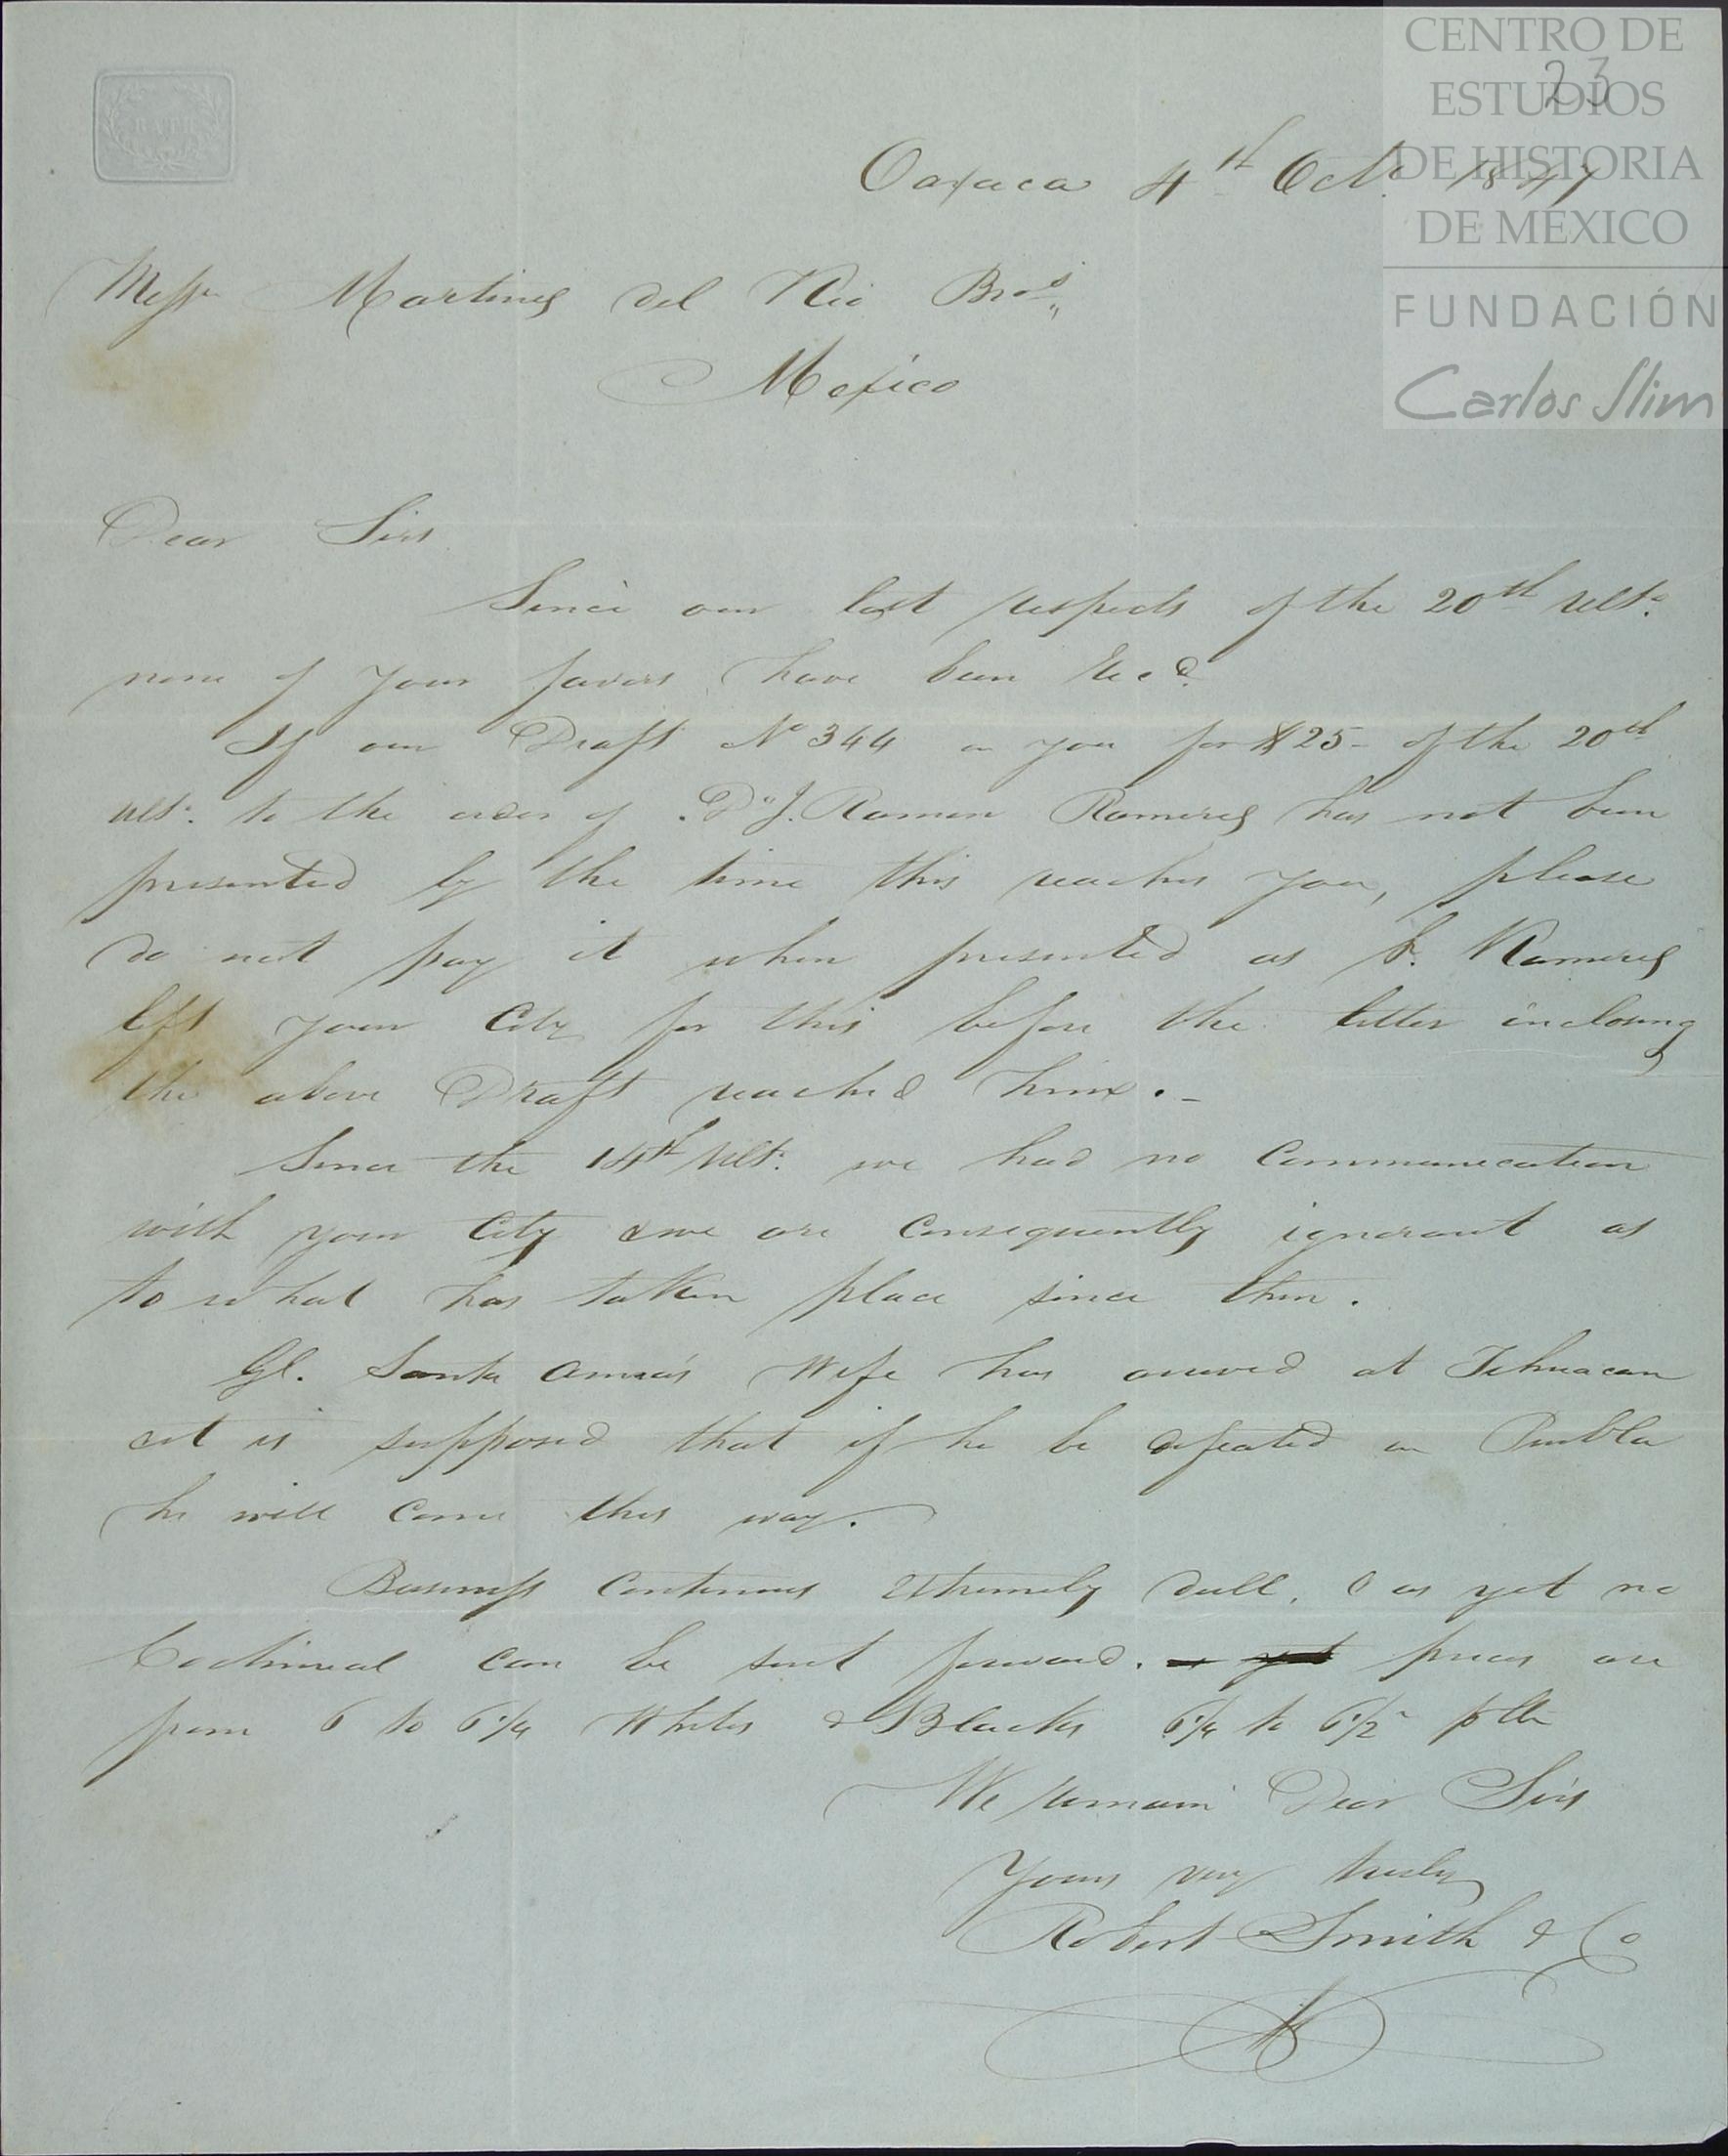 CENTRO DE
ESTUDIOS
DE HISTORIA
DE MÉXICO
FUNDACIÓN
Carlos Slim
23
Oaxaca 4th Oct. 1847
Messrs Martinez del Rio Bros.
Mexico
Dear Sirs
Since our last respects of the 20th ulto.
none of your favors have been recd.
If our Draft No 344 on you for $25- of the 20th
ulto. to the order of Dn J. Ramon Ramirez has not been
presented by the time this reaches you, please
do not pay it when presented as Sr. Ramirez
left your City for this before the letter inclosing
the above Draft reached him.-
Since the 14th ulto. we had no Communication
with your City & we are Consequently ignorant as
to what has taken place since then.
Gl. Santa Anna's Wife has arrived at Tehuacan
& it is supposed that if he be defeated in Puebla
he will come this way.
Business Continues extremely dull, & as yet no
Cochineal can be sent forward. as yet prices are
from 6 to 6 1/4 Whites & Blacks 6 1/4 to 6 1/2 p lb
We remain Dear Sirs
Yours very truly
Robert Smith & Co